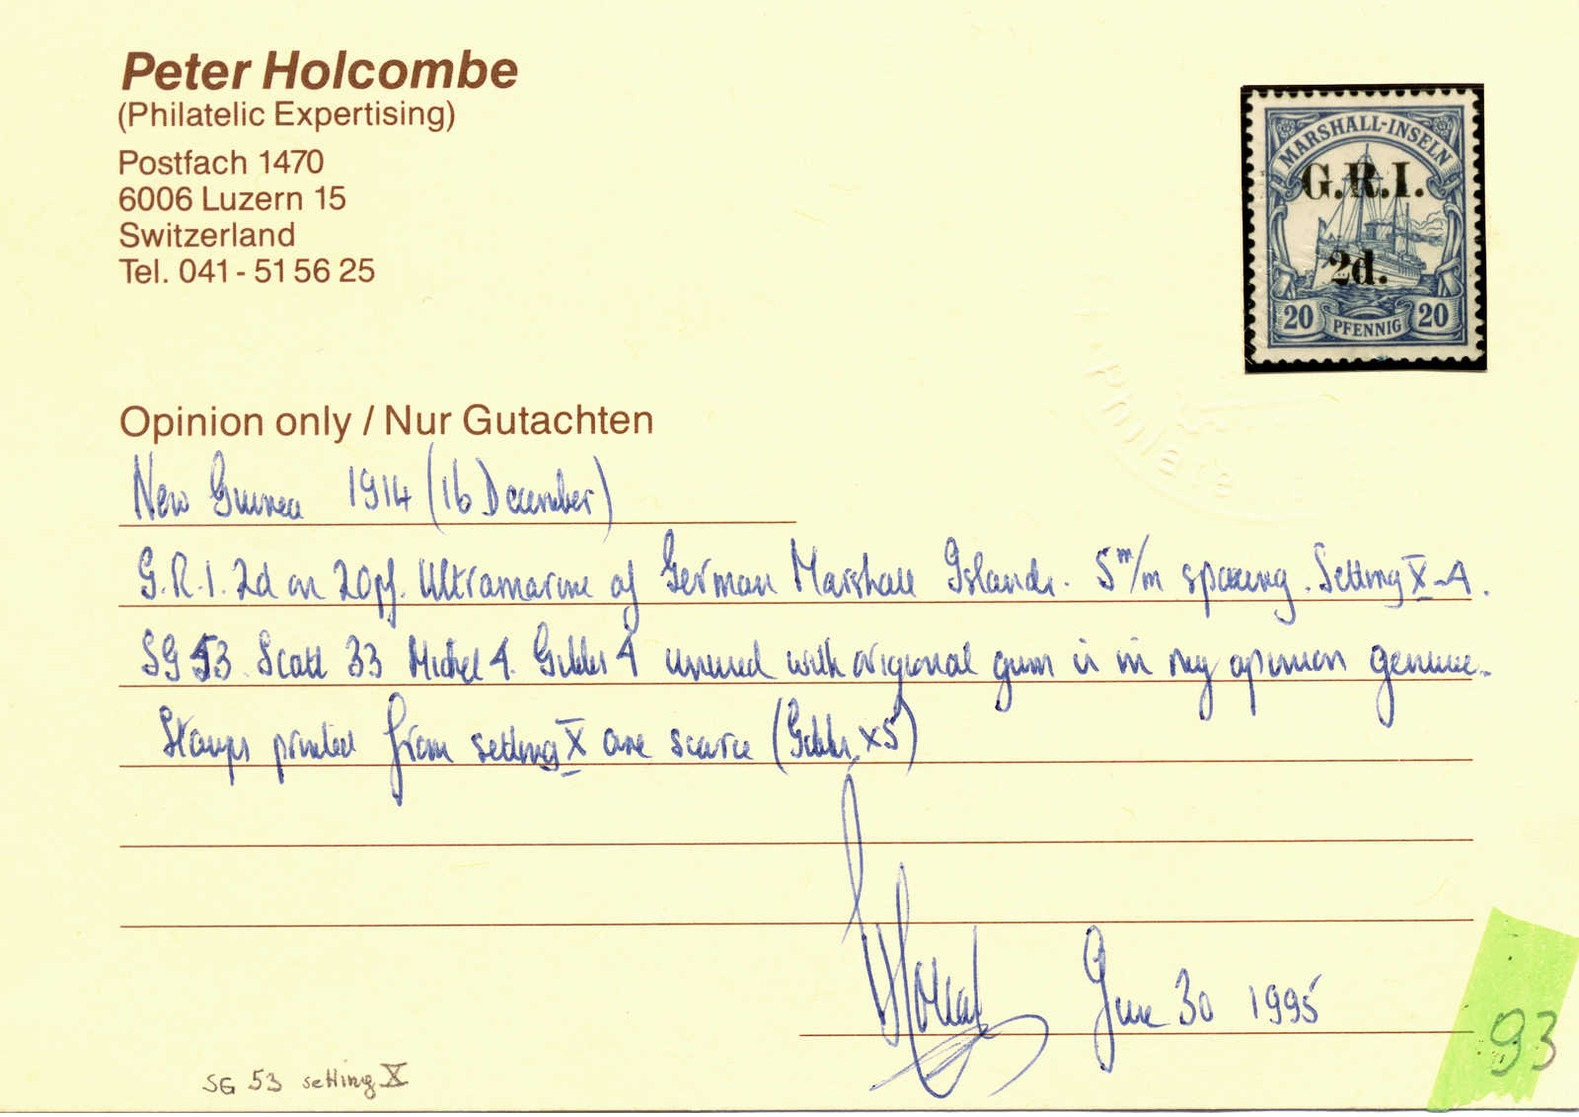 Peter Holcombe
(Philatelic Expertising)
Postfach 1470
6006 Luzern 15
Switzerland
Tel. 041 - 51 56 25
MARSHALL-INSELN
G.R.I.
2d.
20 PFENNIG 20
Philate
Opinion only / Nur Gutachten
New Guinea 1914 (16 December)
G.R.I. 2d on 20pf. Ultramarine of German Marshall Islands. 5 m/m spacing. Setting X-A.
SG 53. Scott 33 Michel 4. Gibbs 4 unused with original gum is in my opinion genuine.
Stamps printed from setting X are scarce (Gibbs X5)
June 30 1995
93
SG 53 setting X